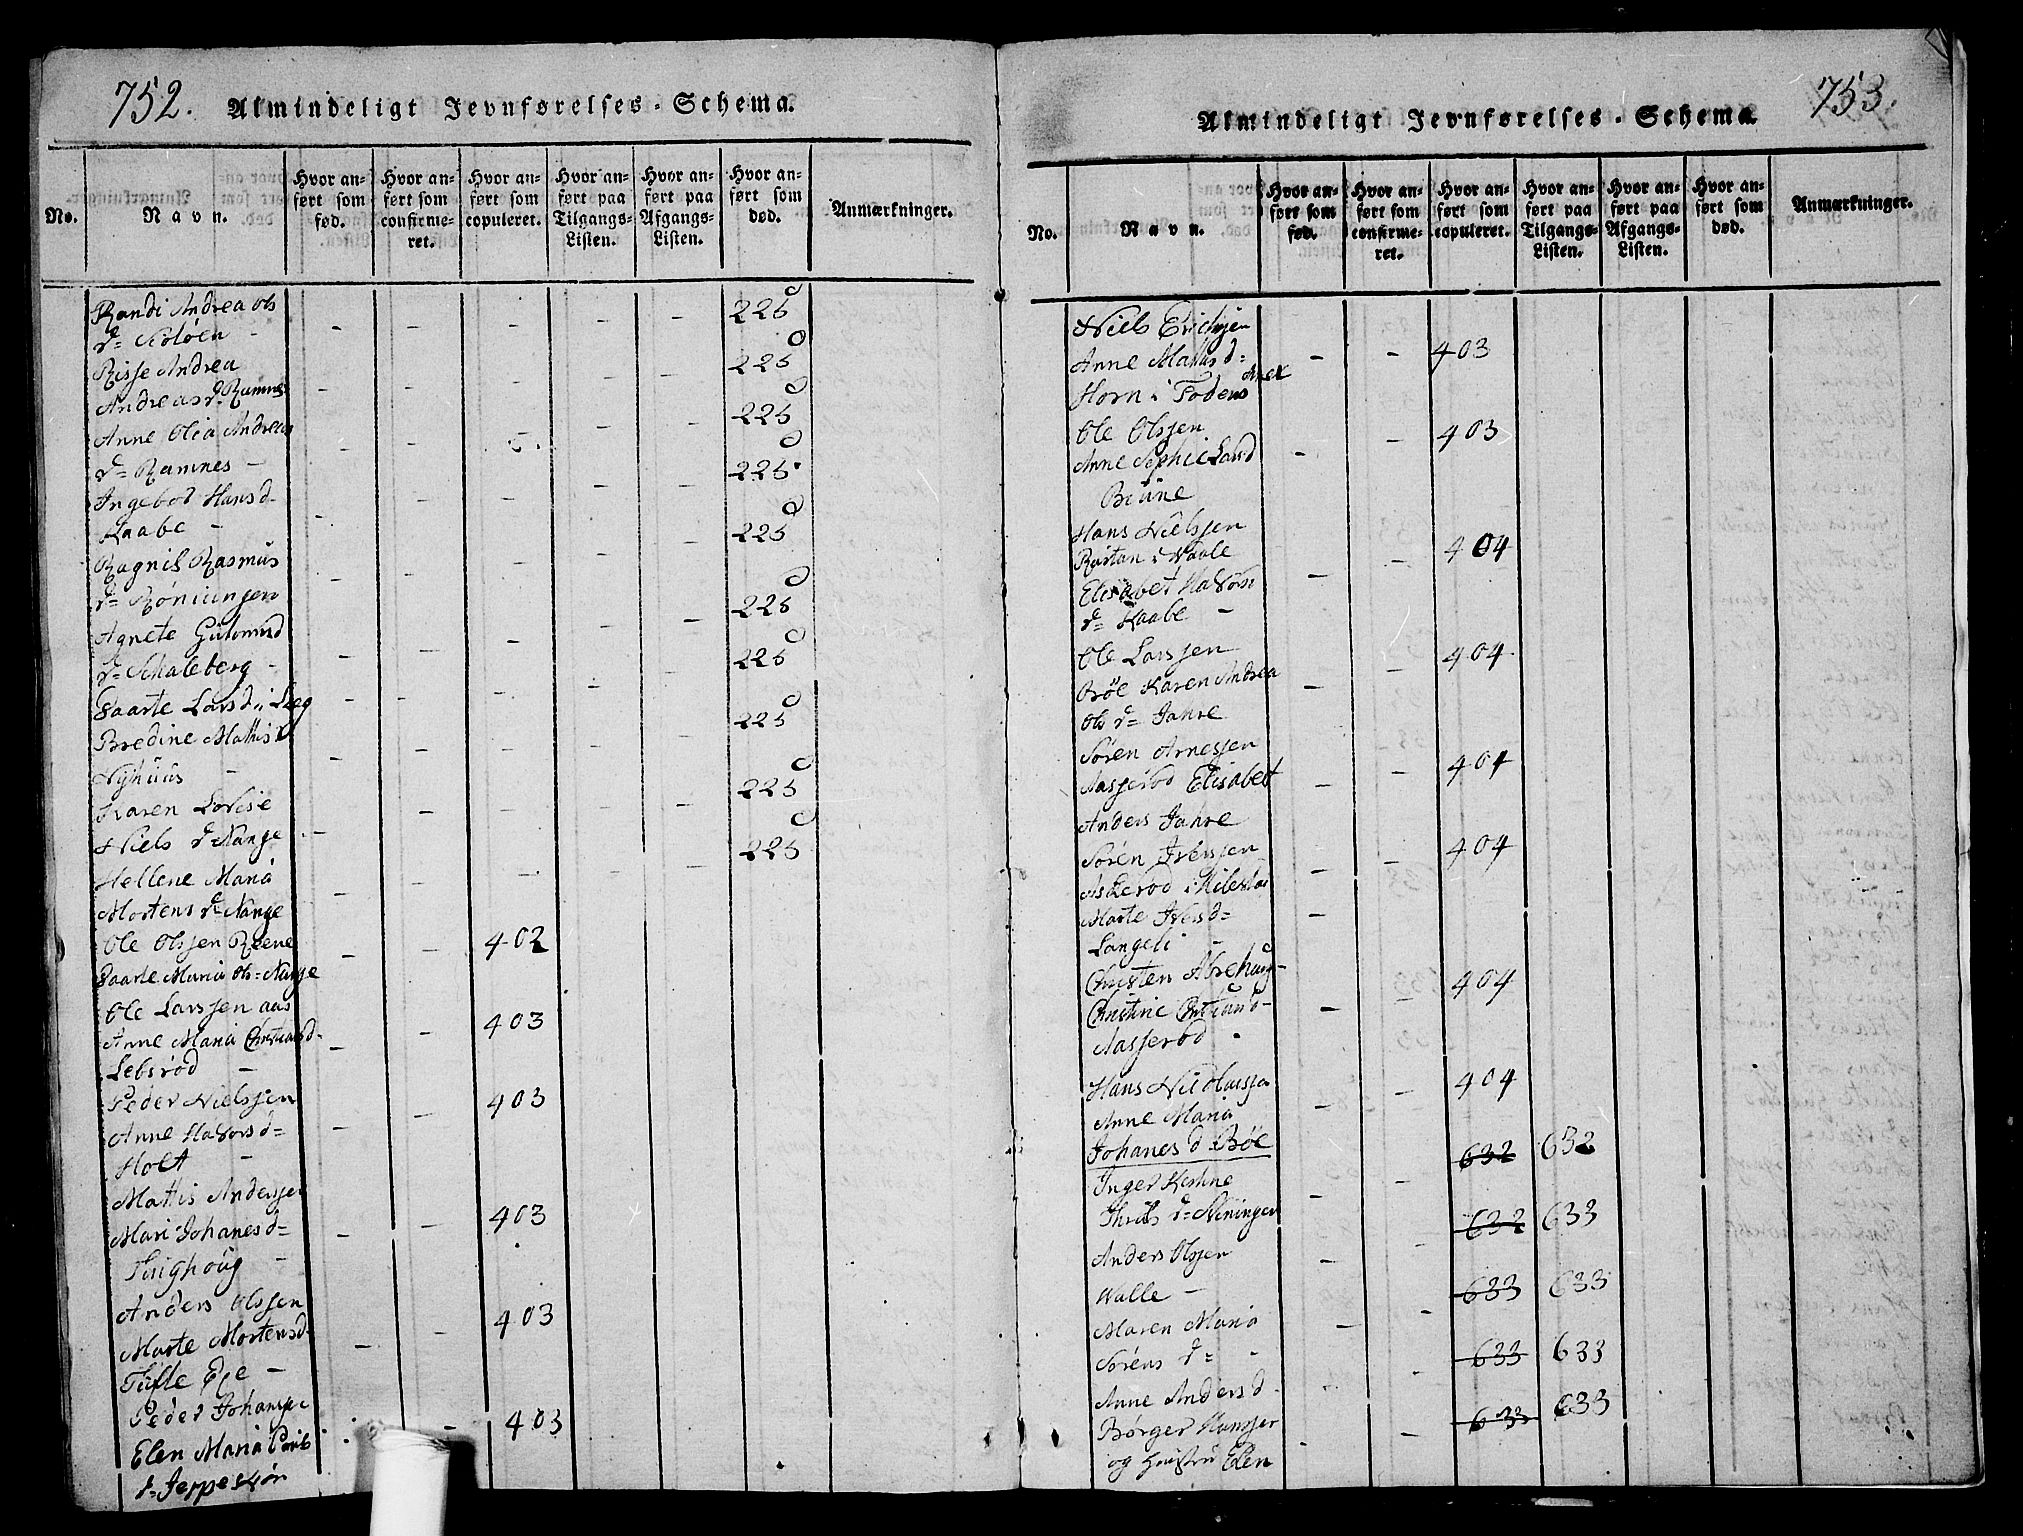 752.
Almindeligt Jevnførelses-Schema.
No.
Navn.
Hvor anført som fød.
Hvor anført som confirmeret.
Hvor anført som copuleret.
Hvor anført paa Tilgangs-Listen.
Hvor anført paa Afgangs-Listen.
Hvor anført som død.
Anmærkninger.
Randi Andrea Ols
d= - 225
Risse Andrea
Andreas d. Ramnes 225
Anne Olia Andreas
d= Ramnes - 225
Ingebor Hansd-
Kaabe - 225
Ragnil Rasmus
d= Røniungen 225
Agnete Gulmund
d= Schaleberg - 225
Gaarte Larsd. i 225
Bredine Mathisd
Nyhuus - 225
Karen Lovise
Niels d= Nange 225
Hellene Maria
Mortens d= Nange 225
Ole Olsjen Reene 402
Gaarte Maria Ols= Nange
Ole Larsjen aas
Anne Maria Christiansd- 403
Lebsrød -
Peder Nielsjen 403
Anne Halvorsd=
Holt -
Mattis Andersjen
Mari Johanesd= 403
Tinghoug -
Anders Olsjen
Marte Mortensd- 403
Tufte Ege -
Peder Johansje
Elen Maria Povels 403
d= Jeppeskør
753.
Almindeligt Jevnførelses-Schema.
No.
Navn.
Hvor anført som fød.
Hvor anført som confirmeret.
Hvor anført som copuleret.
Hvor anført paa Tilgangs-Listen.
Hvor anført paa Afgangs-Listen.
Hvor anført som død.
Anmærkninger.
Niels Erichsjen
Anne Mathisd= 403
Horn i Fodens Anex
Ole Olsjen 403
Anne Sophie Larsd
Brüne
Hans Nielsjen
Rustan i Vaale 404
Elisabet Halvors
d= Kaabe -
Ole Larsjen 404
Brøe Karen Andrea
Ols d= Jahre
Søren Arnesjen
Aasjerød Elisabet 404
Anders Jahre
Søren Iversjen 404
Askerød i
Marte Iversd=
Langeli -
Christen Abraham- 404
Christine Christiansd-
Aasjerød
Hans Nicolaisjen 404
Anne Maria
Johanesd. Bøe 632 632
Inger Kirstine
d= Neningen 632 633
Anders Olsjen
Walle - 633 633
Maren Maria
Sørens d= - 633 633
Anne Andersd-
Børger Hansjen 633 633
og Hustru Elen